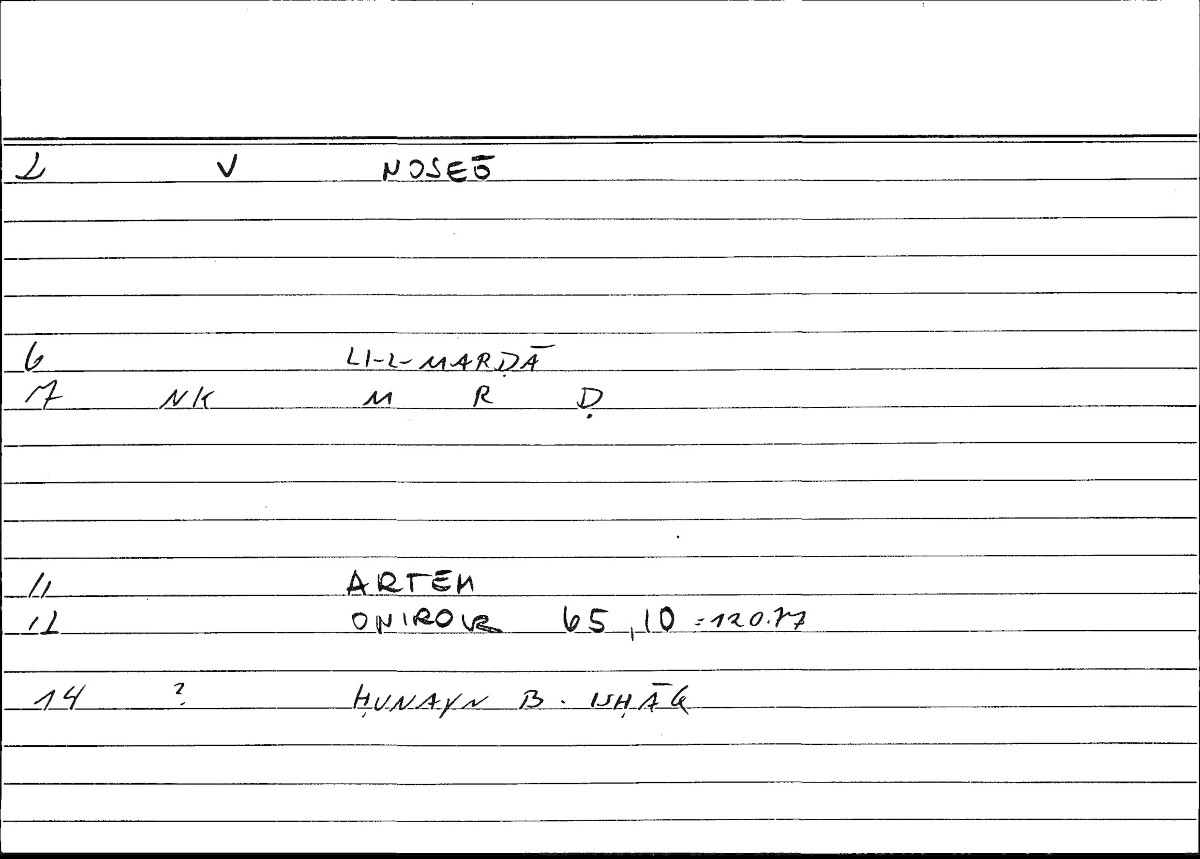 2 V NOSEŌ
6 LI-L-MARḌĀ
7 NK M R Ḍ
11 ARTEM
12 ONIROKR 65,10 = 120.17
14 ? ḤUNAYN B. ISḤĀQ